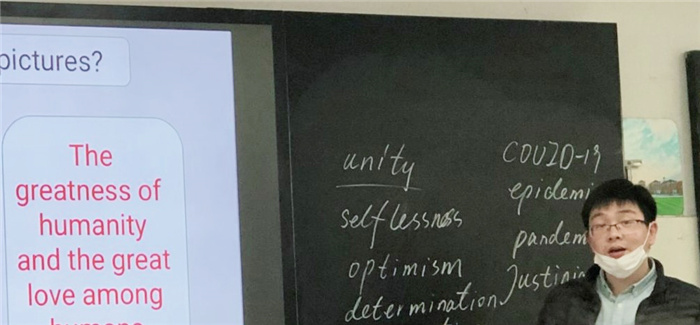 pictures?
The
greatness of
humanity
and the great
love among
humans
unity
selflessness
optimism
determination
COVID-19
epidemi
pandem
Justini